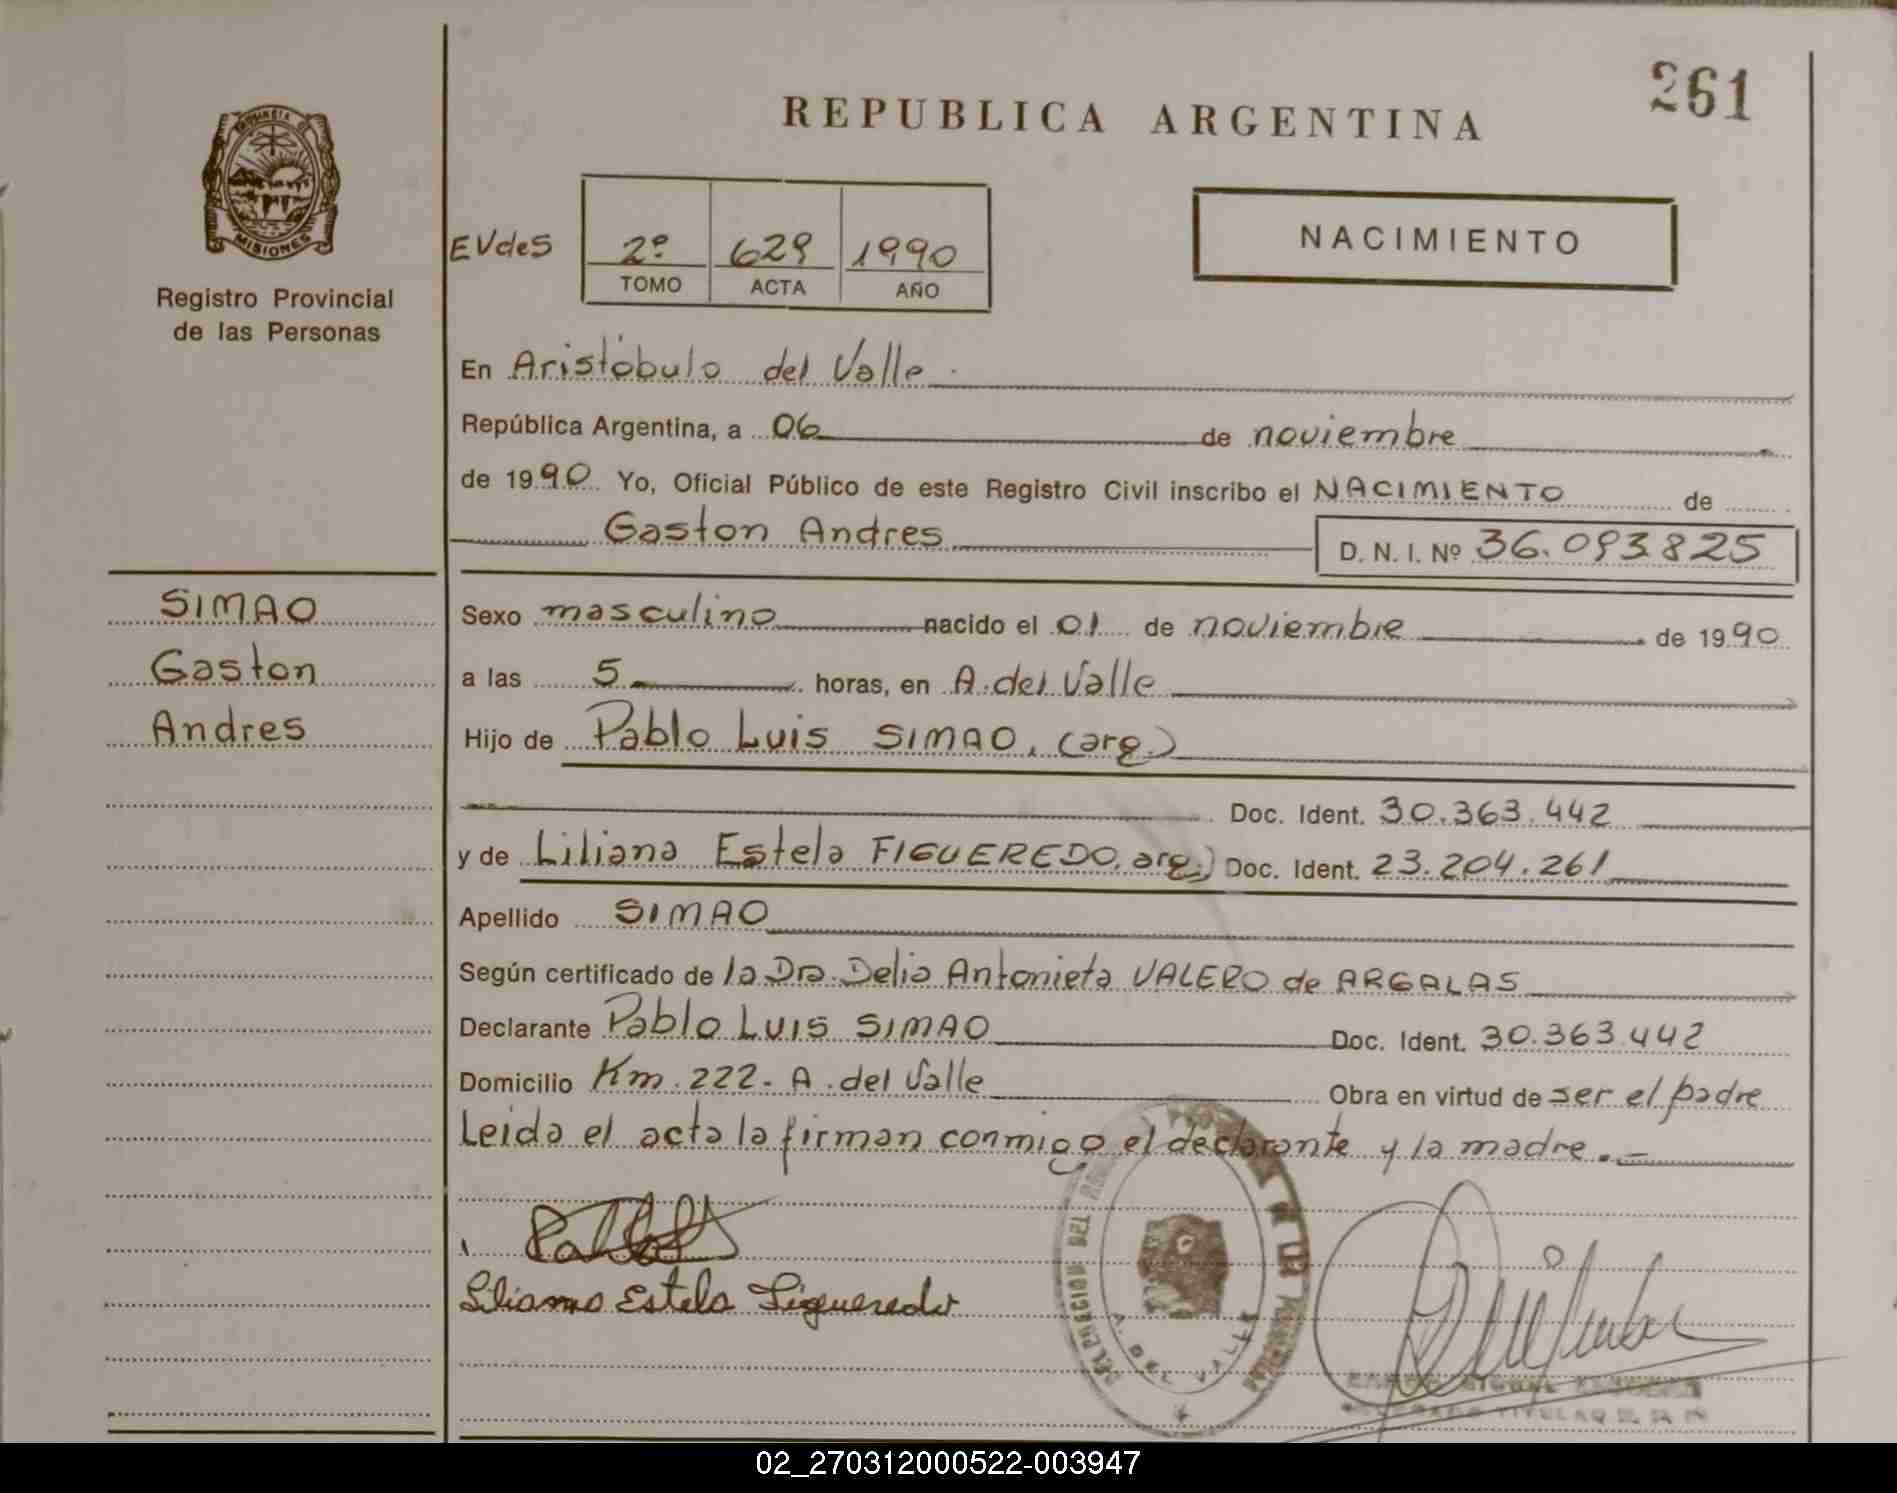 261
REPUBLICA ARGENTINA
PROVINCIA DE
MISIONES
Registro Provincial
de las Personas
EVdes
2º 629 1990
TOMO ACTA AÑO
NACIMIENTO
En Aristóbulo del Valle
República Argentina, a 06 de noviembre
de 1990 Yo, Oficial Público de este Registro Civil inscribo el NACIMIENTO de
Gaston Andres D. N. I. Nº 36.093.825
SIMAO
Gaston
Andres
Sexo masculino nacido el 01 de noviembre de 1990
a las 5 horas, en A. del Valle
Hijo de Pablo Luis SIMAO, (arg.)
Doc. Ident. 30.363.442
y de Liliana Estela FIGUEREDO, arg.) Doc. Ident. 23.204.261
Apellido SIMAO
Según certificado de la Dra. Delia Antonieta VALERO de ARGALAS
Declarante Pablo Luis SIMAO Doc. Ident. 30.363.442
Domicilio Km. 222- A. del Valle Obra en virtud de ser el padre
Leida el acta la firman conmigo el declarante y la madre.-
Liliana Estela Figueredo
A. DEL VALLE
TITULAR
02_270312000522-003947